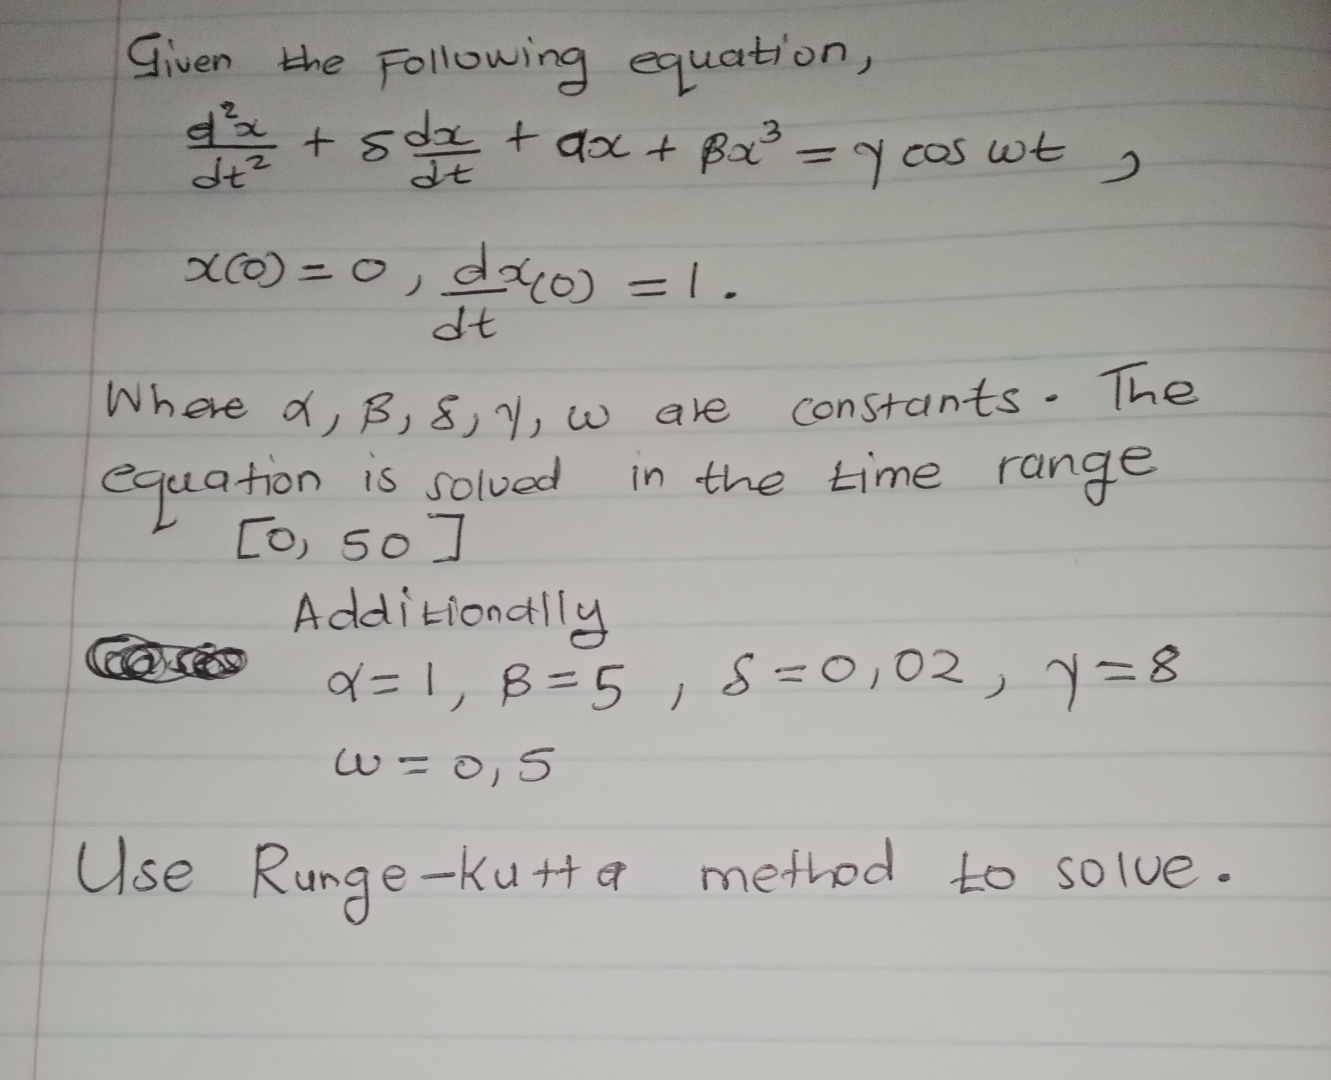 Given the Following equation,
d²x/dt² + δ dx/dt + αx + βx³ = γ cos ωt ,
x(0) = 0 , dx(0)/dt = 1 .
Where α, β, δ, γ, ω are constants. The
equation is solved in the time range
[0, 50]
Additionally
α = 1, β = 5 , δ = 0,02 , γ = 8
ω = 0,5
Use Runge-Kutta method to solve.